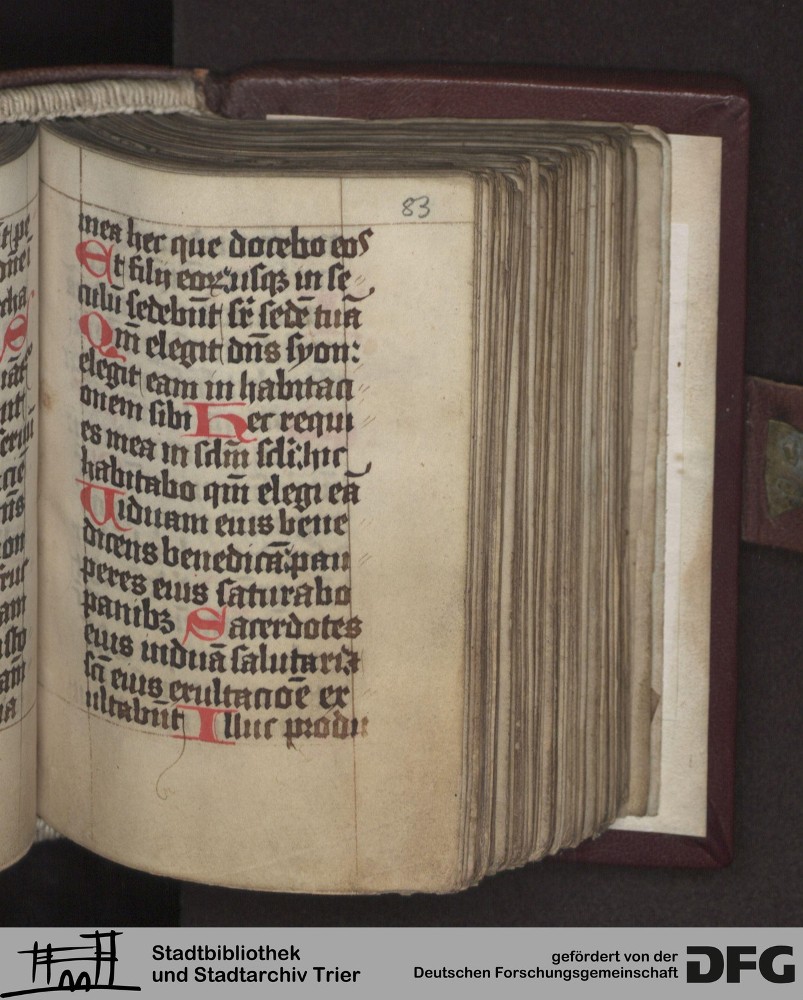 83
mea hec que docebo eos
Et filii eorꝝ usqꝫ in se
culū sedebūt sr̄ sedē tuā
Qm̄ elegit dn̄s syon:
elegit eam in habitaci
onem sibi Hec requi
es mea in sclm̄ scli: hic
habitabo qm̄ elegi eā
Uiduam eius bene
dicens benedicā: pau
peres eius saturabo
panibꝫ Sacerdotes
eius induā salutarȝ
sc̄i eius exultacioē ex
ultabūt Illuc produ
Stadtbibliothek
und Stadtarchiv Trier
gefördert von der
Deutschen Forschungsgemeinschaft
DFG